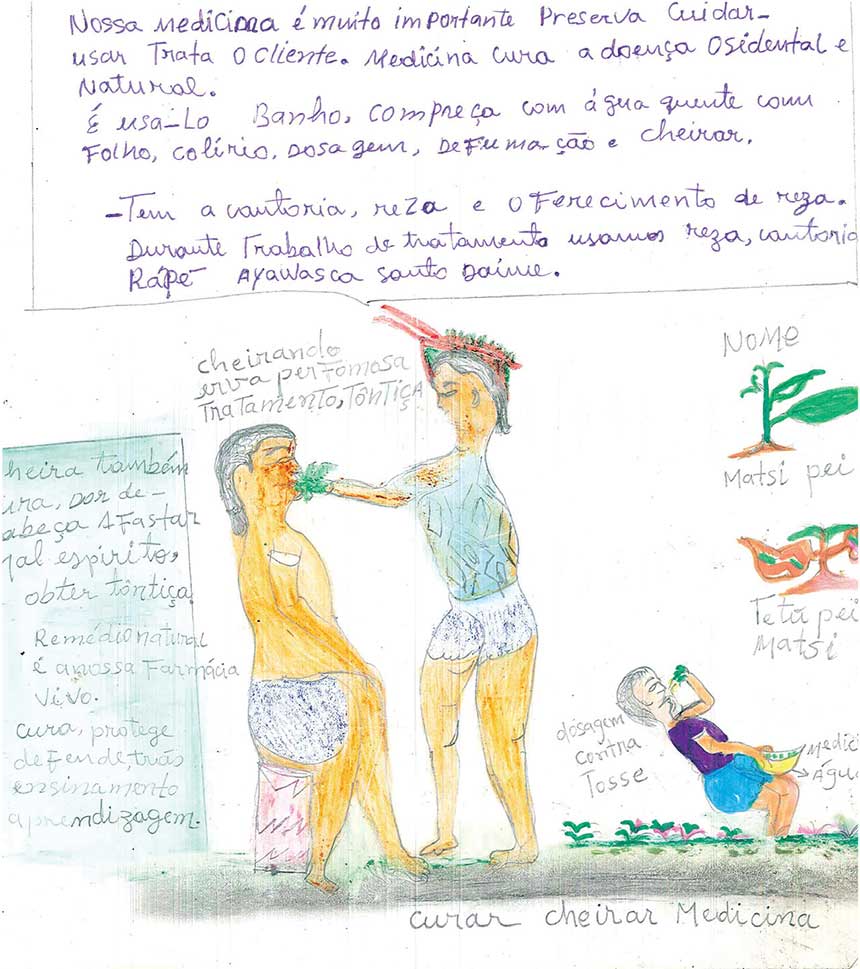 Nossa medicina é muito importante Preserva Cuidar-
usar Trata o cliente. Medicina cura a doença Osidental e
Natural.
É usa-Lo Banho, compreça com água quente comu
Folho, colírio, Dosagem, DeFumação e cheirar.
-Tem a cantoria, reza e oFerecimento de reza.
Durante Trabalho de tratamento usamos reza, cantoria
Rápé Ayawasca santo Daime.
cheirando
erva perFomosa
Tratamento, Tôntiça
NOME
Matsi pei
Tetũ pei
Matsi
heira também
ura, dor de-
abeça AFastar
al espírito,
obter tôntiça
Remédio natural
é a nossa Farmácia
Vivo.
cura, protege
deFende, trás
ensinamento
aprendizagem.
dosagem
contra
Tosse
Medici
Água
curar cheirar Medicina